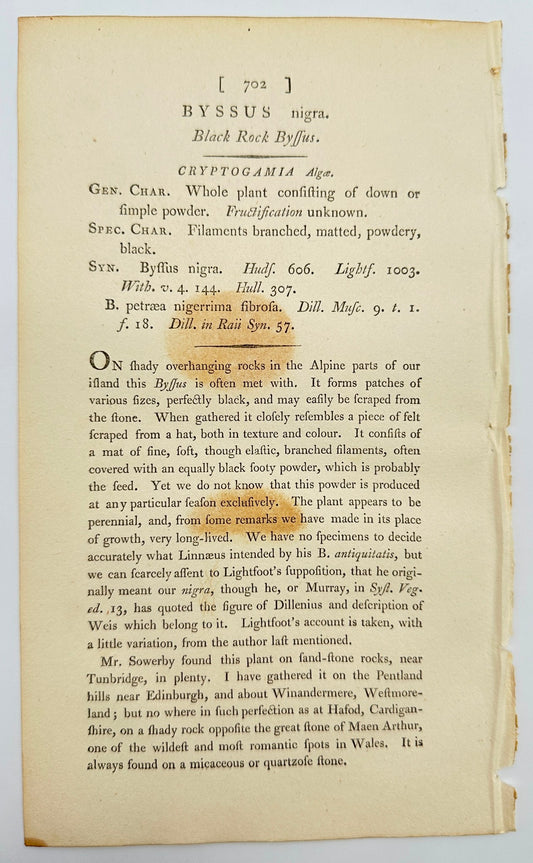 [ 702 ]
BYSSUS nigra.
Black Rock Byſſus.
CRYPTOGAMIA Algæ.
GEN. CHAR. Whole plant conſiſting of down or
ſimple powder. Fructification unknown.
SPEC. CHAR. Filaments branched, matted, powdery,
black.
SYN. Byſſus nigra. Hudſ. 606. Lightf. 1003.
With. v. 4. 144. Hull. 307.
B. petræa nigerrima fibroſa. Dill. Muſc. 9. t. 1.
f. 18. Dill. in Raii Syn. 57.
ON ſhady overhanging rocks in the Alpine parts of our
iſland this Byſſus is often met with. It forms patches of
various ſizes, perfectly black, and may eaſily be ſcraped from
the ſtone. When gathered it cloſely reſembles a piece of felt
ſcraped from a hat, both in texture and colour. It conſiſts of
a mat of fine, ſoft, though elaſtic, branched filaments, often
covered with an equally black ſooty powder, which is probably
the ſeed. Yet we do not know that this powder is produced
at any particular ſeaſon excluſively. The plant appears to be
perennial, and, from ſome remarks we have made in its place
of growth, very long-lived. We have no ſpecimens to decide
accurately what Linnæus intended by his B. antiquitatis, but
we can ſcarcely aſſent to Lightfoot's ſuppoſition, that he origi-
nally meant our nigra, though he, or Murray, in Syſt. Veg.
ed. 13, has quoted the figure of Dillenius and deſcription of
Weis which belong to it. Lightfoot's account is taken, with
a little variation, from the author laſt mentioned.
Mr. Sowerby found this plant on ſand-ſtone rocks, near
Tunbridge, in plenty. I have gathered it on the Pentland
hills near Edinburgh, and about Winandermere, Weſtmore-
land; but no where in ſuch perfection as at Hafod, Cardigan-
ſhire, on a ſhady rock oppoſite the great ſtone of Maen Arthur,
one of the wildeſt and moſt romantic ſpots in Wales. It is
always found on a micaceous or quartzoſe ſtone.